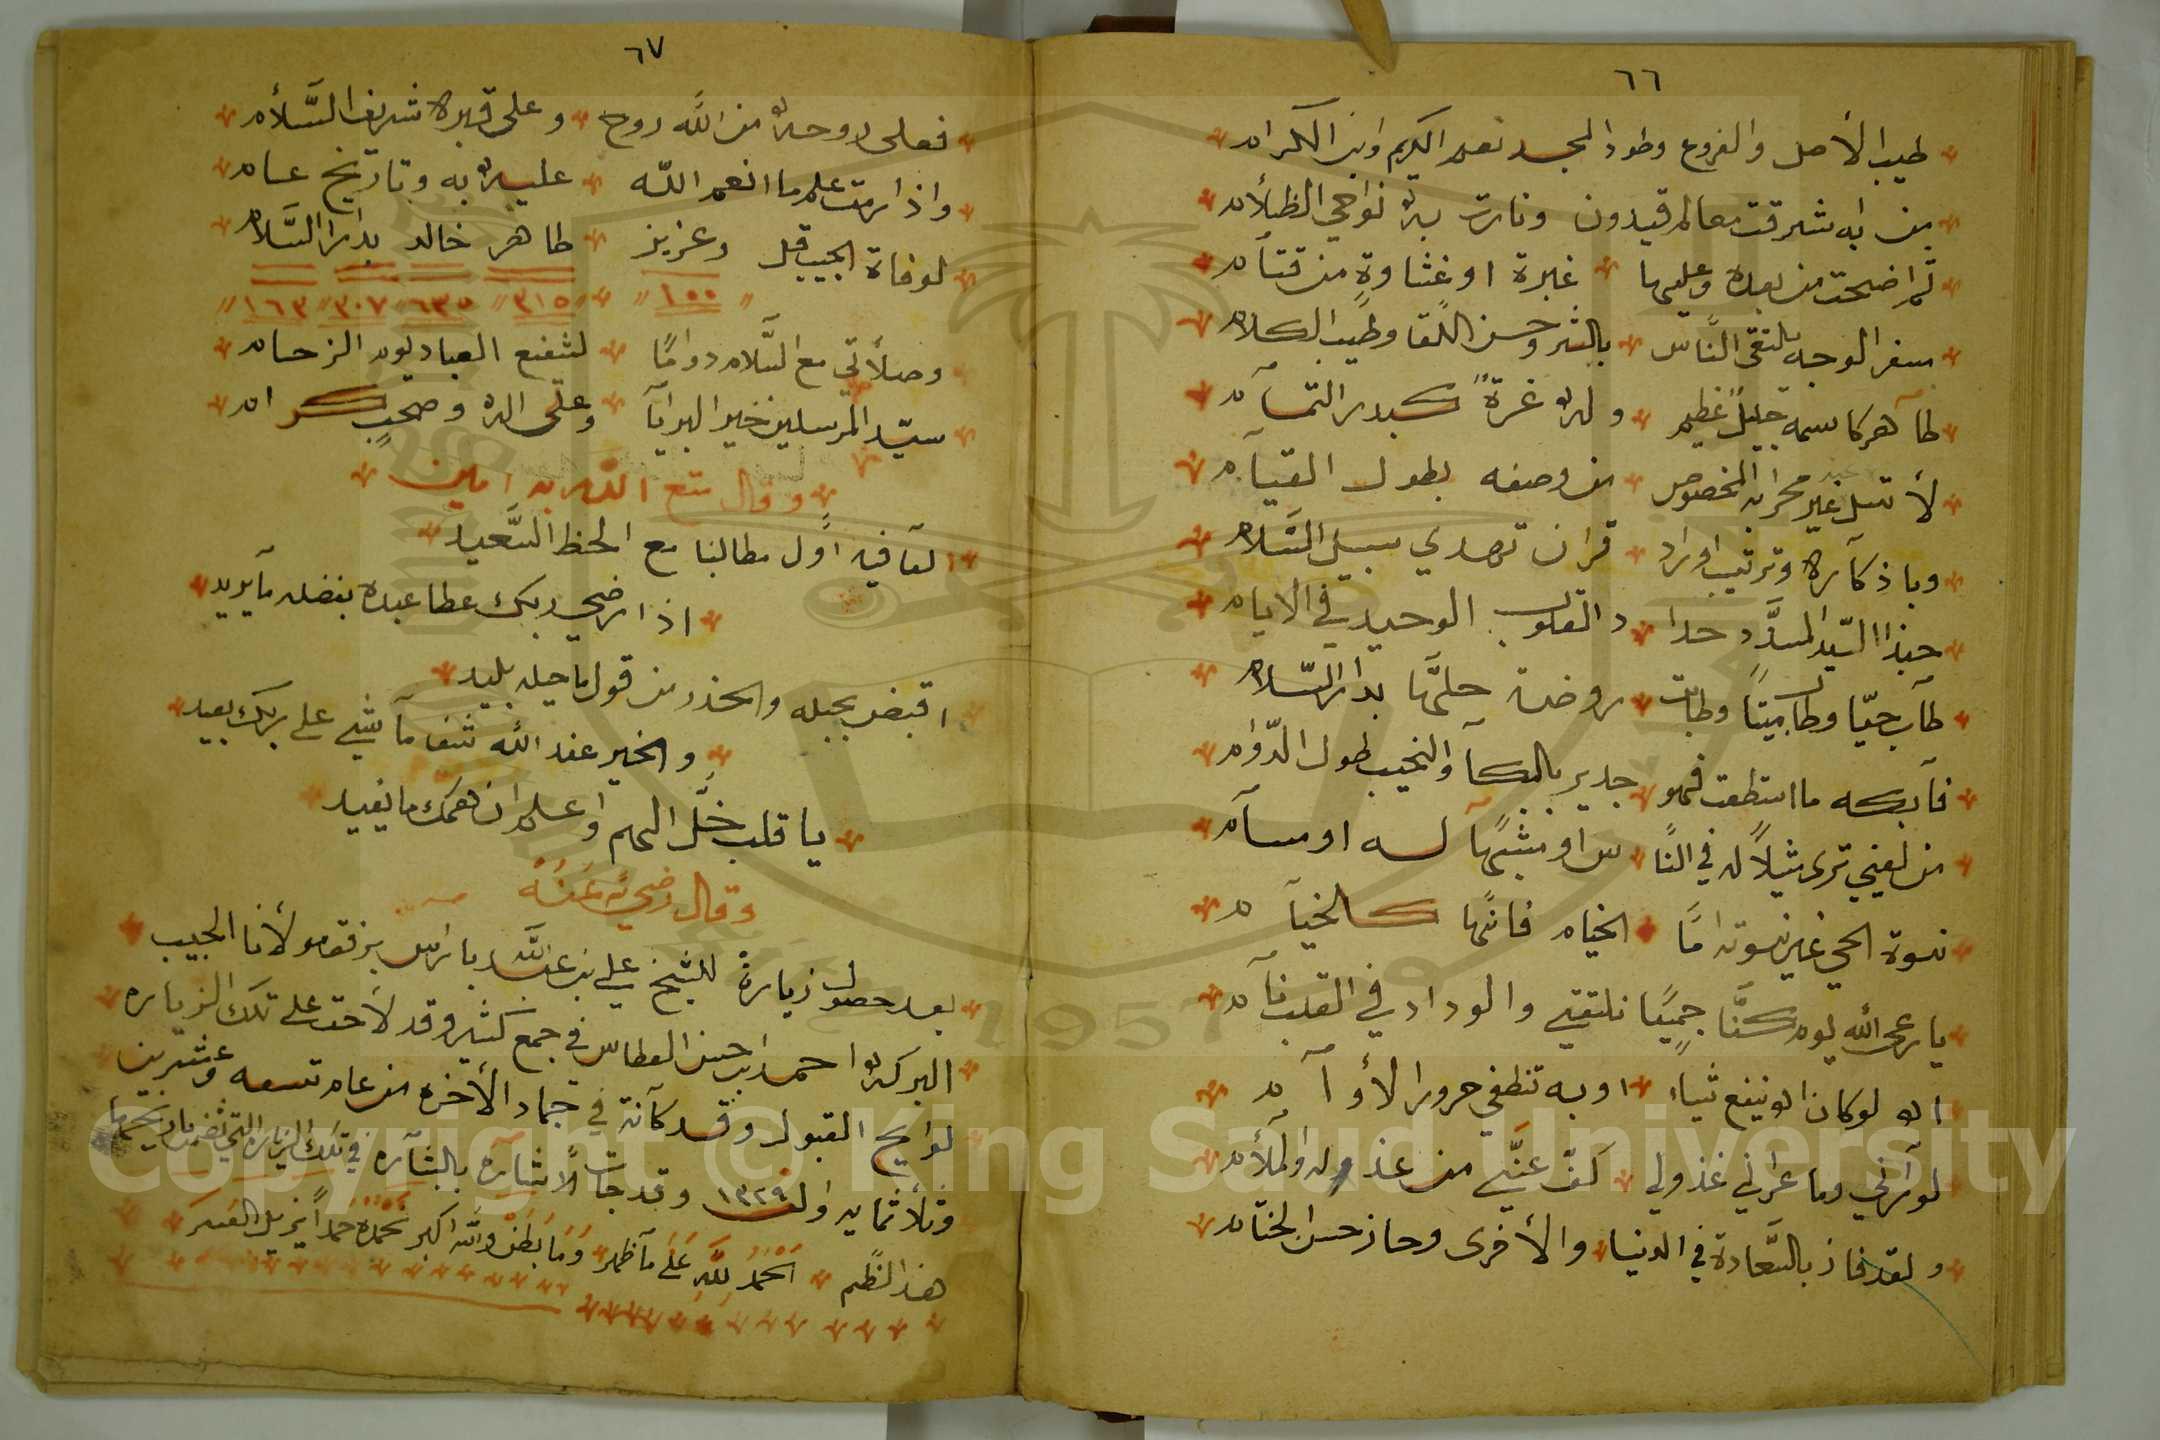 ٦٦
طيب الأصل والفروع وطود المجد نعم الكريم وابن الكرام
من به شرقت معالم قيدون ونارت به نواحي الظلام
ثم اضحت من بعده وعليها غبرة او غشاوة من قتام
سفر الوجه يلتقي الناس بالبشر وحسن اللقا وطيب الكلام
طاهر كاسمه جليل عظيم وله غرة كبدر التمام
لا تسل غير محرابه المخصوص من وصفه بطول القيام
وباذكاره وترتيب اوراد قران تهدي سبيل السلام
حبذا السيد المسدد حدا د القلوب الوحيد في الايام
طاب حيا وطاب ميتا وطابت روضة حلها بدار السلام
فابكه ما استطعت فهو جدير بالبكا والنحيب طول الدوام
من لعيني ترى مثيلا له في النا س او مشبها له او مسام
نسوة الحي غير نسوته اما الخيام فانها كالخيام
يا رعى الله يوم كنا جميعا نلتقي والوداد في القلب نام
اه لو كان اه ينفع شياء او به تنطفي حرور الأوام
لو راني وما عراني عذولي كف عني من عذله والملام
ولقد فاز بالسعادة في الدنيا والأخرى وحاز حسن الختام
٦٧
فعلى روحه من الله روح وعلى قبره شريف السلام
واذا رمت علم ما انعم الله عليه به وتاريخ عام
لوفاة الحبيب قل وعزيز طاهر خالد بدار السلام
١٠٠ ٣١٥ ٦٣٥ ٣٠٧ ١٦٣
وصلاتي مع السلام دواما لشفيع العباد يوم الزحام
سيد المرسلين خير البرايا وعلى اله وصحب كرام
وقال متع الله به امين
العافيه اول مطالبنا مع الحظ السعيد
اذا رضي ربك عطا عبده بفضله ما يريد
اقبض بحبله والحذر من قول ما حيله بليد
والخير عند الله شف ما شي على ربك بعيد
يا قلب خل الهم واعلم ان همك ما يفيد
وقال رضي الله عنه
بعد حصول زيارة للشيخ علي بن عبدالله باراس برفقة مولانا الحبيب
البركه احمد بن حسن العطاس في جمع كثير وقد لاحت على تلك الزياره
لوايح القبول وقد كانة في جماد الأخره من عام تسعه وعشرين
وثلاثمايه والف ١٣٢٩ وقد جات الاشاره بالبشاره في تلك الزياره التي تضمن تاريخها
هذا النظم الحمد لله على ما ظهر وما بطن والله اكبر نحمده حمدا يزيل العسر